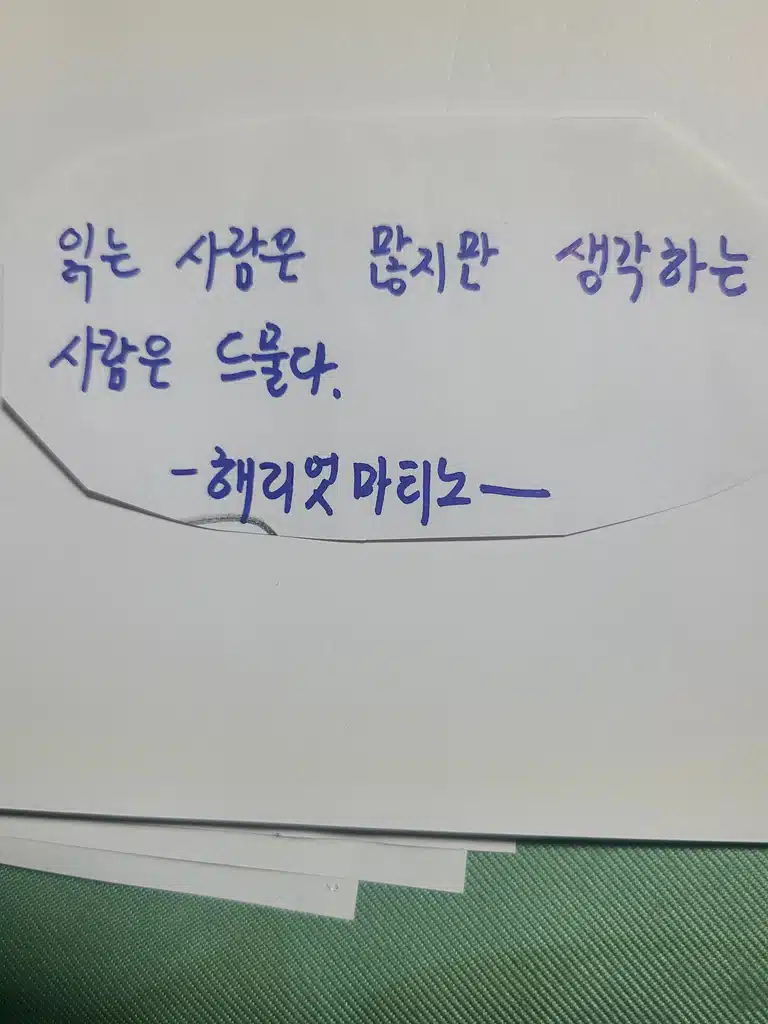 읽는 사람은 많지만 생각하는
사람은 드물다.
-해리엇 마티노-